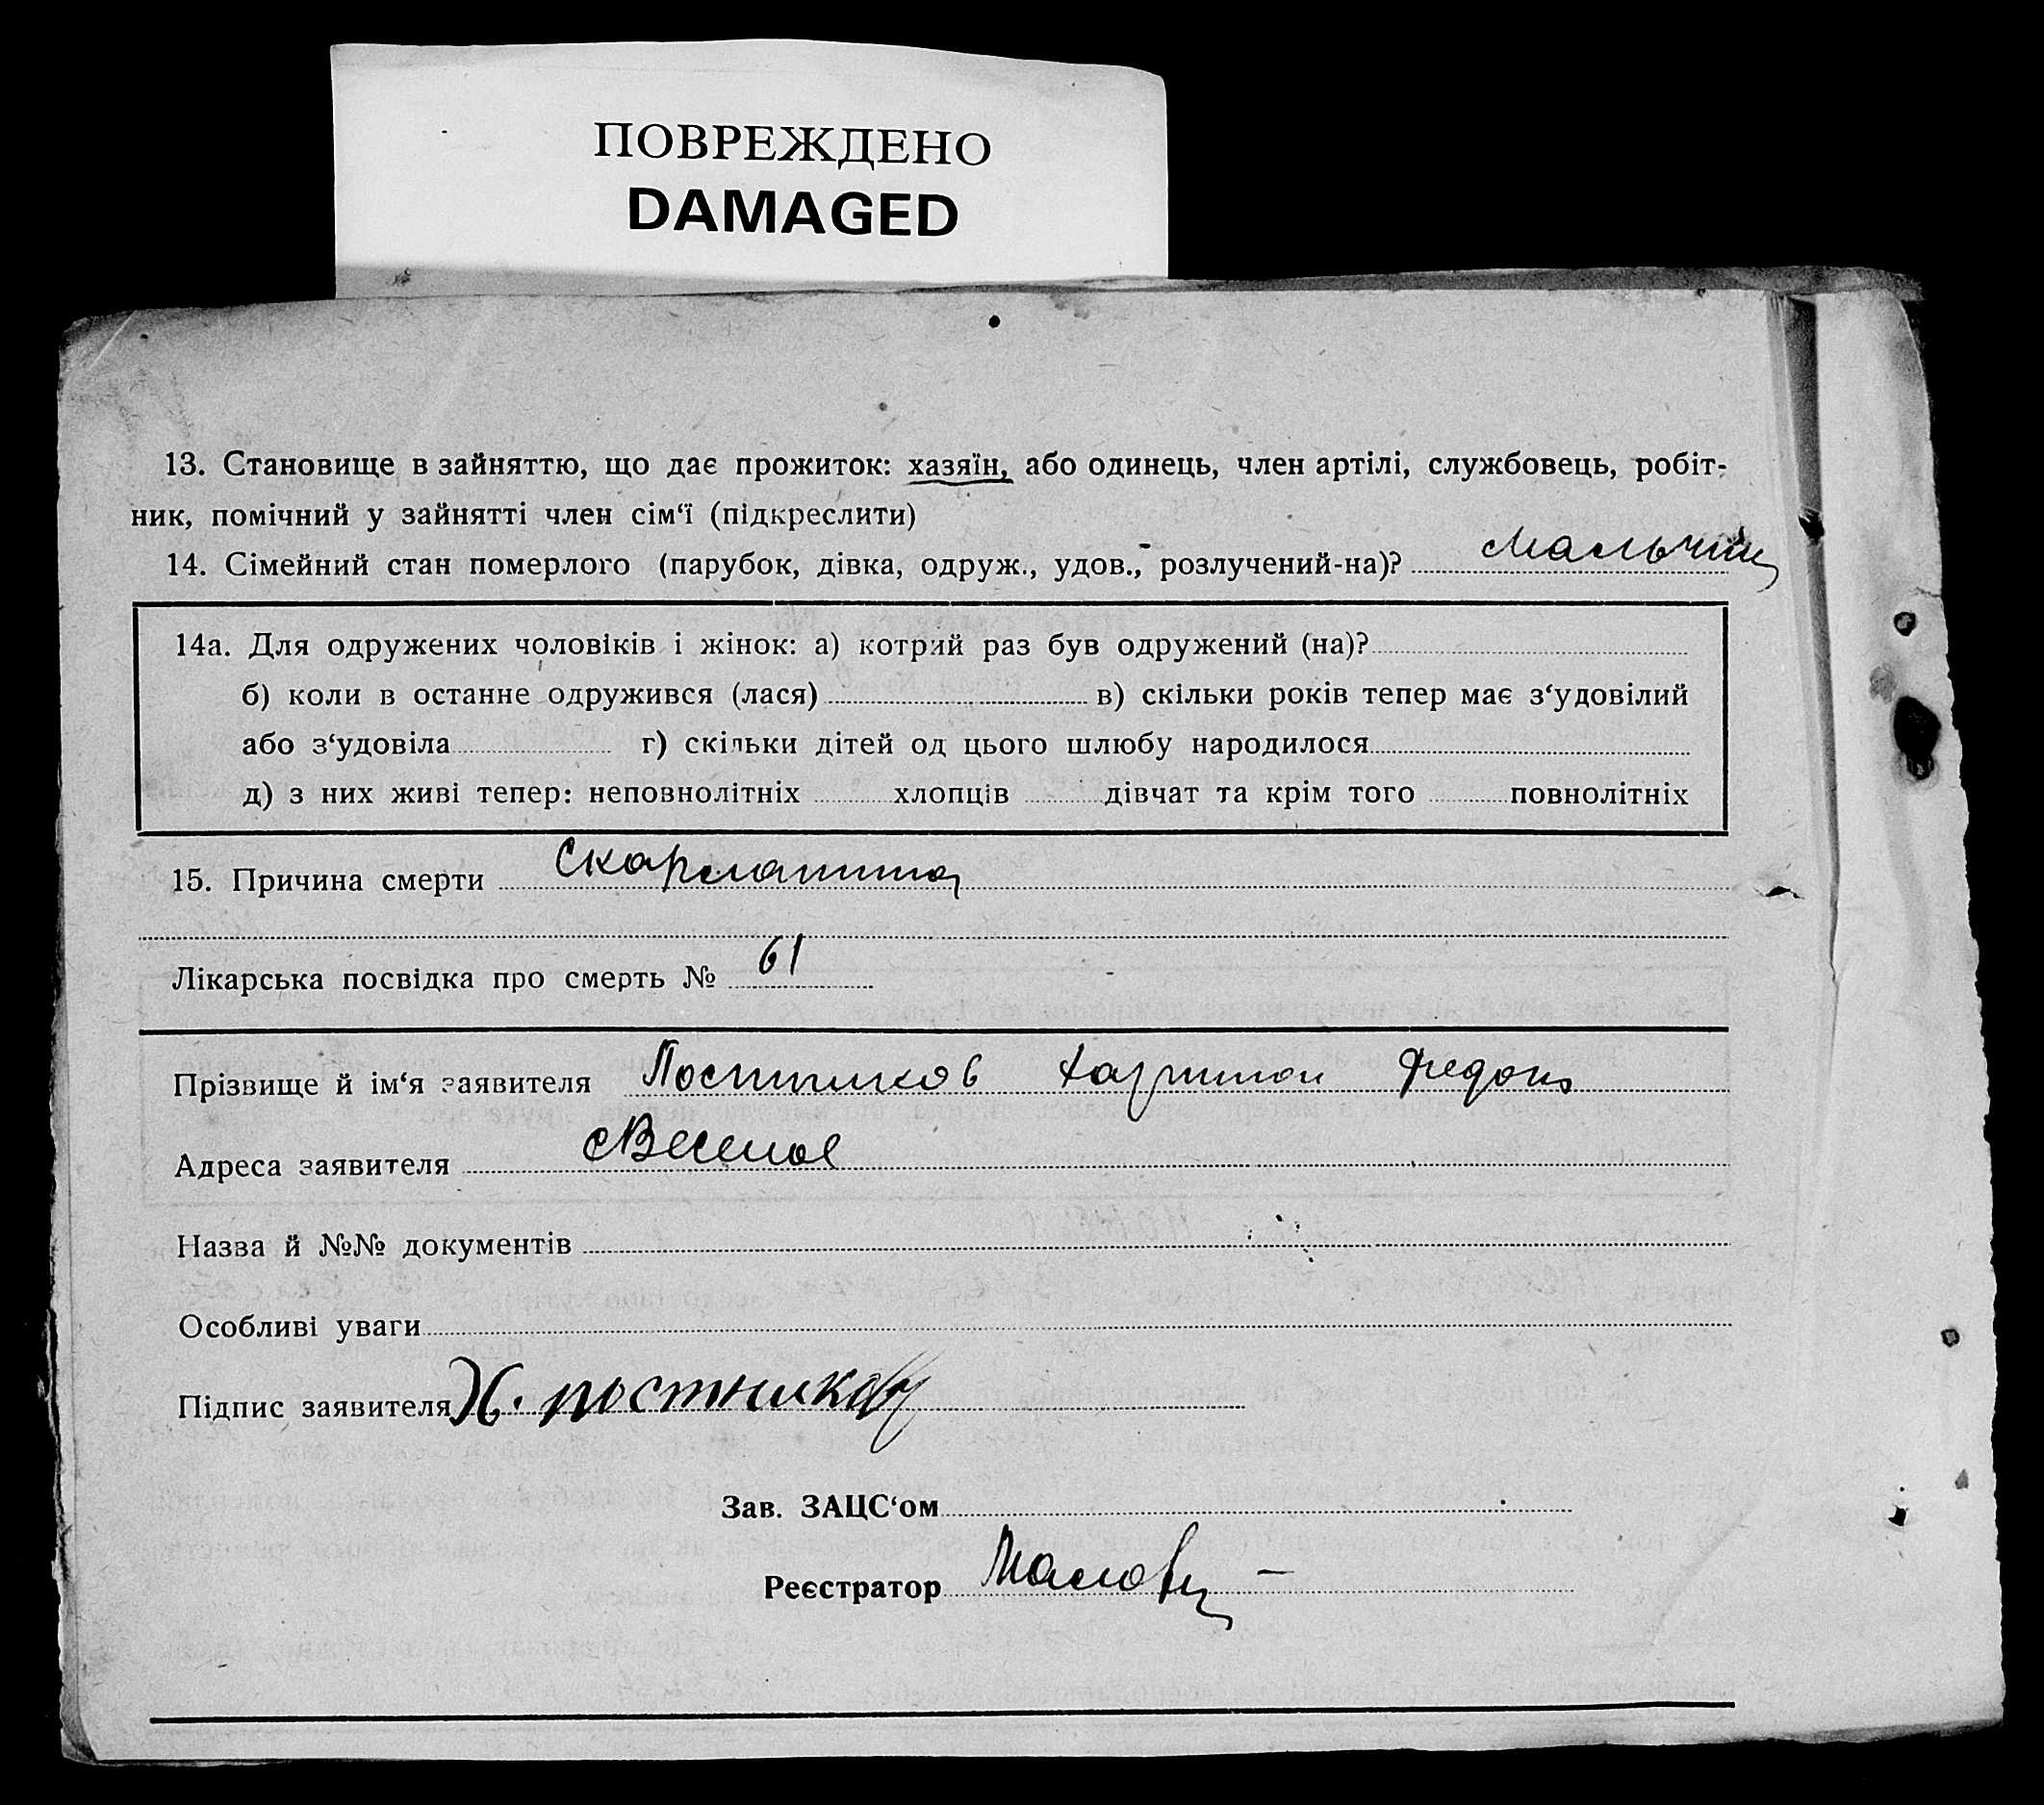 ПОВРЕЖДЕНО
DAMAGED
13. Становище в зайняттю, що дає прожиток: хазяїн, або одинець, член артілі, службовець, робіт-
ник, помічний у зайнятті член сім‘ї (підкреслити)
14. Сімейний стан померлого (парубок, дівка, одруж., удов., розлучений-на)?
14а. Для одружених чоловіків і жінок: а) котрий раз був одружений (на)?
б) коли в останне одружився (лася) в) скільки років тепер має з‘удовілий
або з‘удовіла г) скільки дітей од цього шлюбу народилося
д) з них живі тепер: неповнолітніх хлопців дівчат та крім того повнолітніх
15. Причина смерти Скарлатина
Лікарська посвідка про смерть № 61
Прізвище й ім‘я заявителя Постников Харитон
Адреса заявителя с Веселое
Назва й №№ документів
Особливі уваги
Підпис заявителя Х. постников
Зав. ЗАЦС‘ом
Реєстратор